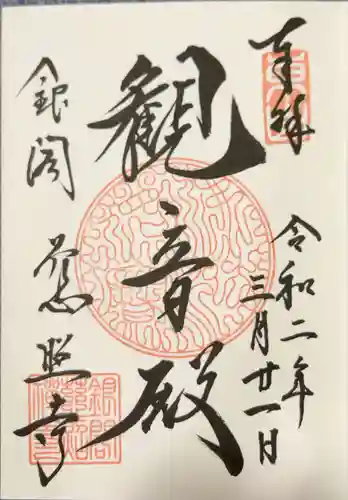 奉拝
令和二年
三月廿一日
観音殿
銀閣慈照寺